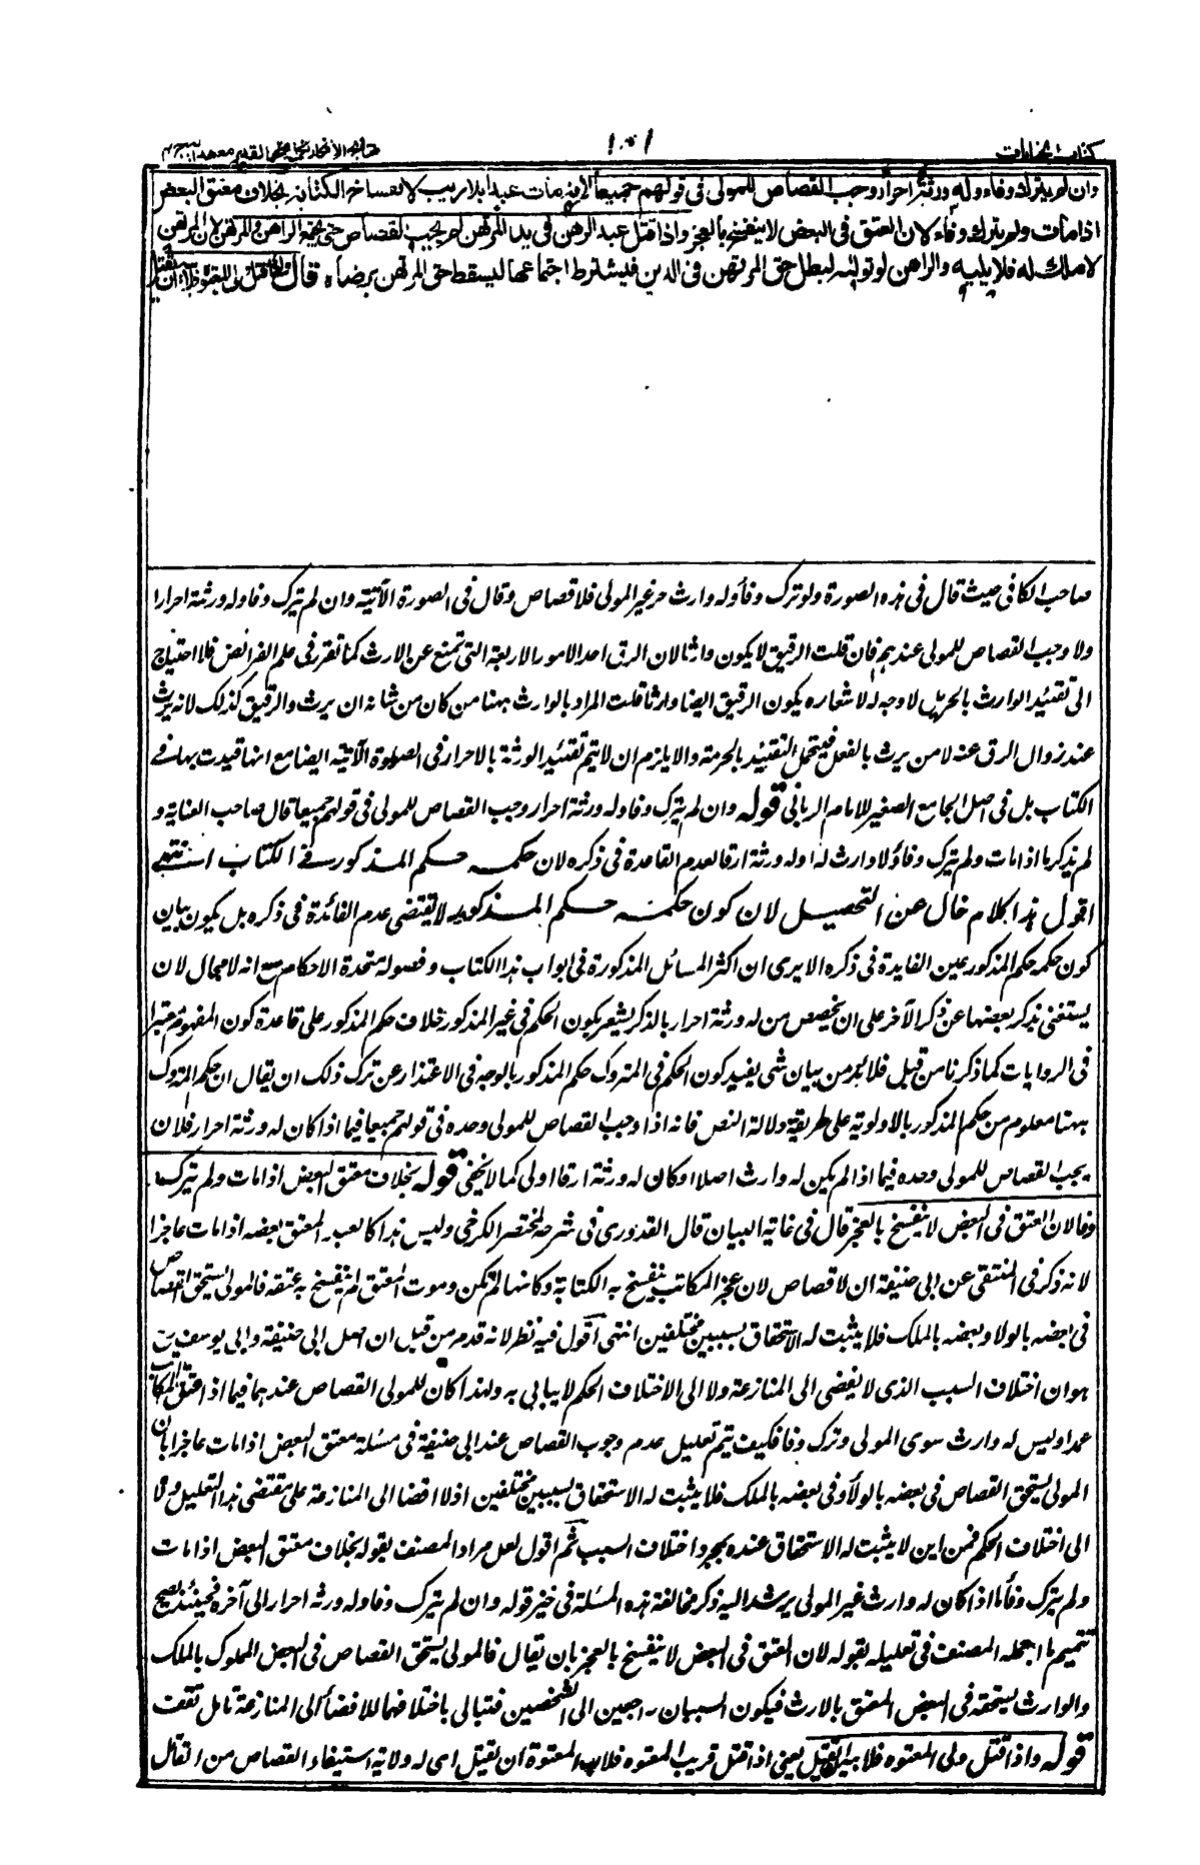 كتاب الجنايات
١٠٥١
وان لم يترك وفاء وله ورثة احرار وجب القصاص للمولى فى قولهم جميعا لانه مات عبدا بلا ريب لانفساخ الكتابة بخلاف معتق البعض
اذا مات ولم يترك وفاء لان العتق فى البعض لا ينفسخ بالعجز واذا قتل عبد الرهن فى يد المرتهن لم يجب القصاص حتى يجتمع الراهن والمرتهن لان المرتهن
لا ملك له فلا يليه والراهن لو تولاه لبطل حق المرتهن فى الدين فيشترط اجتماعهما ليسقط حق المرتهن برضاه قال واذا قتل ولى المعتوه
صاحب الكافى حيث قال فى هذه الصورة ولو ترك وفاء وله وارث حر غير المولى فلا قصاص وقال فى الصورة الآتية وان لم يترك وفا وله ورثة احرارا
ولا وجب القصاص للمولى عندهم فان قلت الرقيق لا يكون وارثا لان الرق احد الامور الاربعة التى تمنع عن الارث كما تقرر فى علم الفرائض فلا احتياج
الى تقييد الوارث بالحر بل لا وجه له لاشعاره بكون الرقيق ايضا وارثا قلت المراد بالوارث ههنا من كان من شانه ان يرث والرقيق كذلك لانه يرث
عند زوال الرق عنه لا من يرث بالفعل فيتحمل التقييد بالحرية والا يلزم ان لا يتم تقييد الورثة بالاحرار فى الصورة الآتية ايضا مع انها قيدت بها فى
الكتاب بل فى اصل الجامع الصغير للامام الربانى قوله وان لم يترك وفا وله ورثة احرار وجب القصاص للمولى فى قولهم جميعا قال صاحب العناية و
لم يذكر ما اذا مات ولم يترك وفاء ولا وارث له او له ورثة ارقا لعدم الفاعدة فى ذكره لان حكمه حكم المذكور فى الكتاب انتهى
اقول هذا كلام خال عن التحصيل لان كون حكمه حكم المذكور لا يقتضى عدم الفائدة فى ذكره بل يكون بيان
كون حكمه حكم المذكور عين الفايدة فى ذكره الا يرى ان اكثر المسائل المذكورة فى ابواب هذا الكتاب وفصوله متحدة الاحكام مع انه لا مجال لان
يستغنى بذكر بعضها عن ذكر الآخر على ان تخصيص من له ورثة احرار بالذكر يشعر بكون الحكم فى غير المذكور خلاف حكم المذكور على قاعدة كون المفهوم معتبرا
فى الروايات كما ذكرنا من قبل فلا بد من بيان شى يفيد كون الحكم فى المتروك حكم المذكور بالوجه فى الاعتذار عن ترك ذلك ان يقال ان حكم المتروك
ههنا معلوم من حكم المذكور بالاولوية على طريقة دلالة النص فانه اذا وجب القصاص للمولى وحده فى قولهم جميعا فيما اذا كان له ورثة احرار فلان
يجب القصاص للمولى وحده فيما اذا لم يكن له وارث اصلا او كان له ورثة ارقا اولى كما لا يخفى قوله بخلاف معتق البعض اذا مات ولم يترك
وفا لان العتق فى البعض لا ينفسخ بالعجز قال فى غاية البيان قال القدورى فى شرحه لمختصر الكرخى وليس هذا كالعبد المعتق بعضه اذا مات عاجزا
لانه ذكر فى المنتقى عن ابى حنيفة ان لا قصاص لان عجز المكاتب ينفسخ به الكتابة وكانها لم تكن وموت المعتق لم ينفسخ به عتقه فالمولى يستحق القصاص
فى بعضه بالولا وبعضه بالملك فلا يثبت له الاستحقاق بسببين مختلفين انتهى اقول فيه نظر لانه قد مر من قبل ان اصل ابى حنيفة وابى يوسف رح
هو ان اختلاف السبب الذى لا يفضى الى المنازعة ولا الى الاختلاف الحكم لا يبالى به ولهذا كان للمولى القصاص عندهما فيما اذا قتل المكاتب
عمدا وليس له وارث سوى المولى وترك وفا فكيف يتم تعليل عدم وجوب القصاص عند ابى حنيفة فى مسئلة معتق البعض اذا مات عاجزا بان
المولى يستحق القصاص فى بعضه بالولاء وفى بعضه بالملك فلا يثبت له الاستحقاق بسببين مختلفين اذ لا افضا الى المنازعة على مقتضى هذا التعليل ولا
الى اختلاف الحكم فمن اين لا يثبت له الاستحقاق عنده بمجرد اختلاف السبب ثم اقول لعل مراد المصنف بقوله بخلاف معتق البعض اذا مات
ولم يترك وفاء ما اذا كان له وارث غير المولى يرشد اليه ذكر مخالفة هذه المسئلة فى خير قوله وان لم يترك وفا وله ورثه احرار الى آخره فحينئذ يصح
تتميم ما اجمله المصنف فى تعليله بقوله لان العتق فى البعض لا ينفسخ بالعجز بان يقال فالمولى يستحق القصاص فى البعض المملوك بالملك
والوارث يستحقه فى البعض المعتق بالارث فيكون السببان راجعين الى الشخصين فيبالى باختلافهما للافضاء الى المنازعة تامل تقف
قوله واذا قتل ولى المعتوه فلابيه ان يقتل يعنى اذا قتل قريب المعتوه فلاب المعتوه ان يقتل اى له ولاية استيفاء القصاص من القاتل